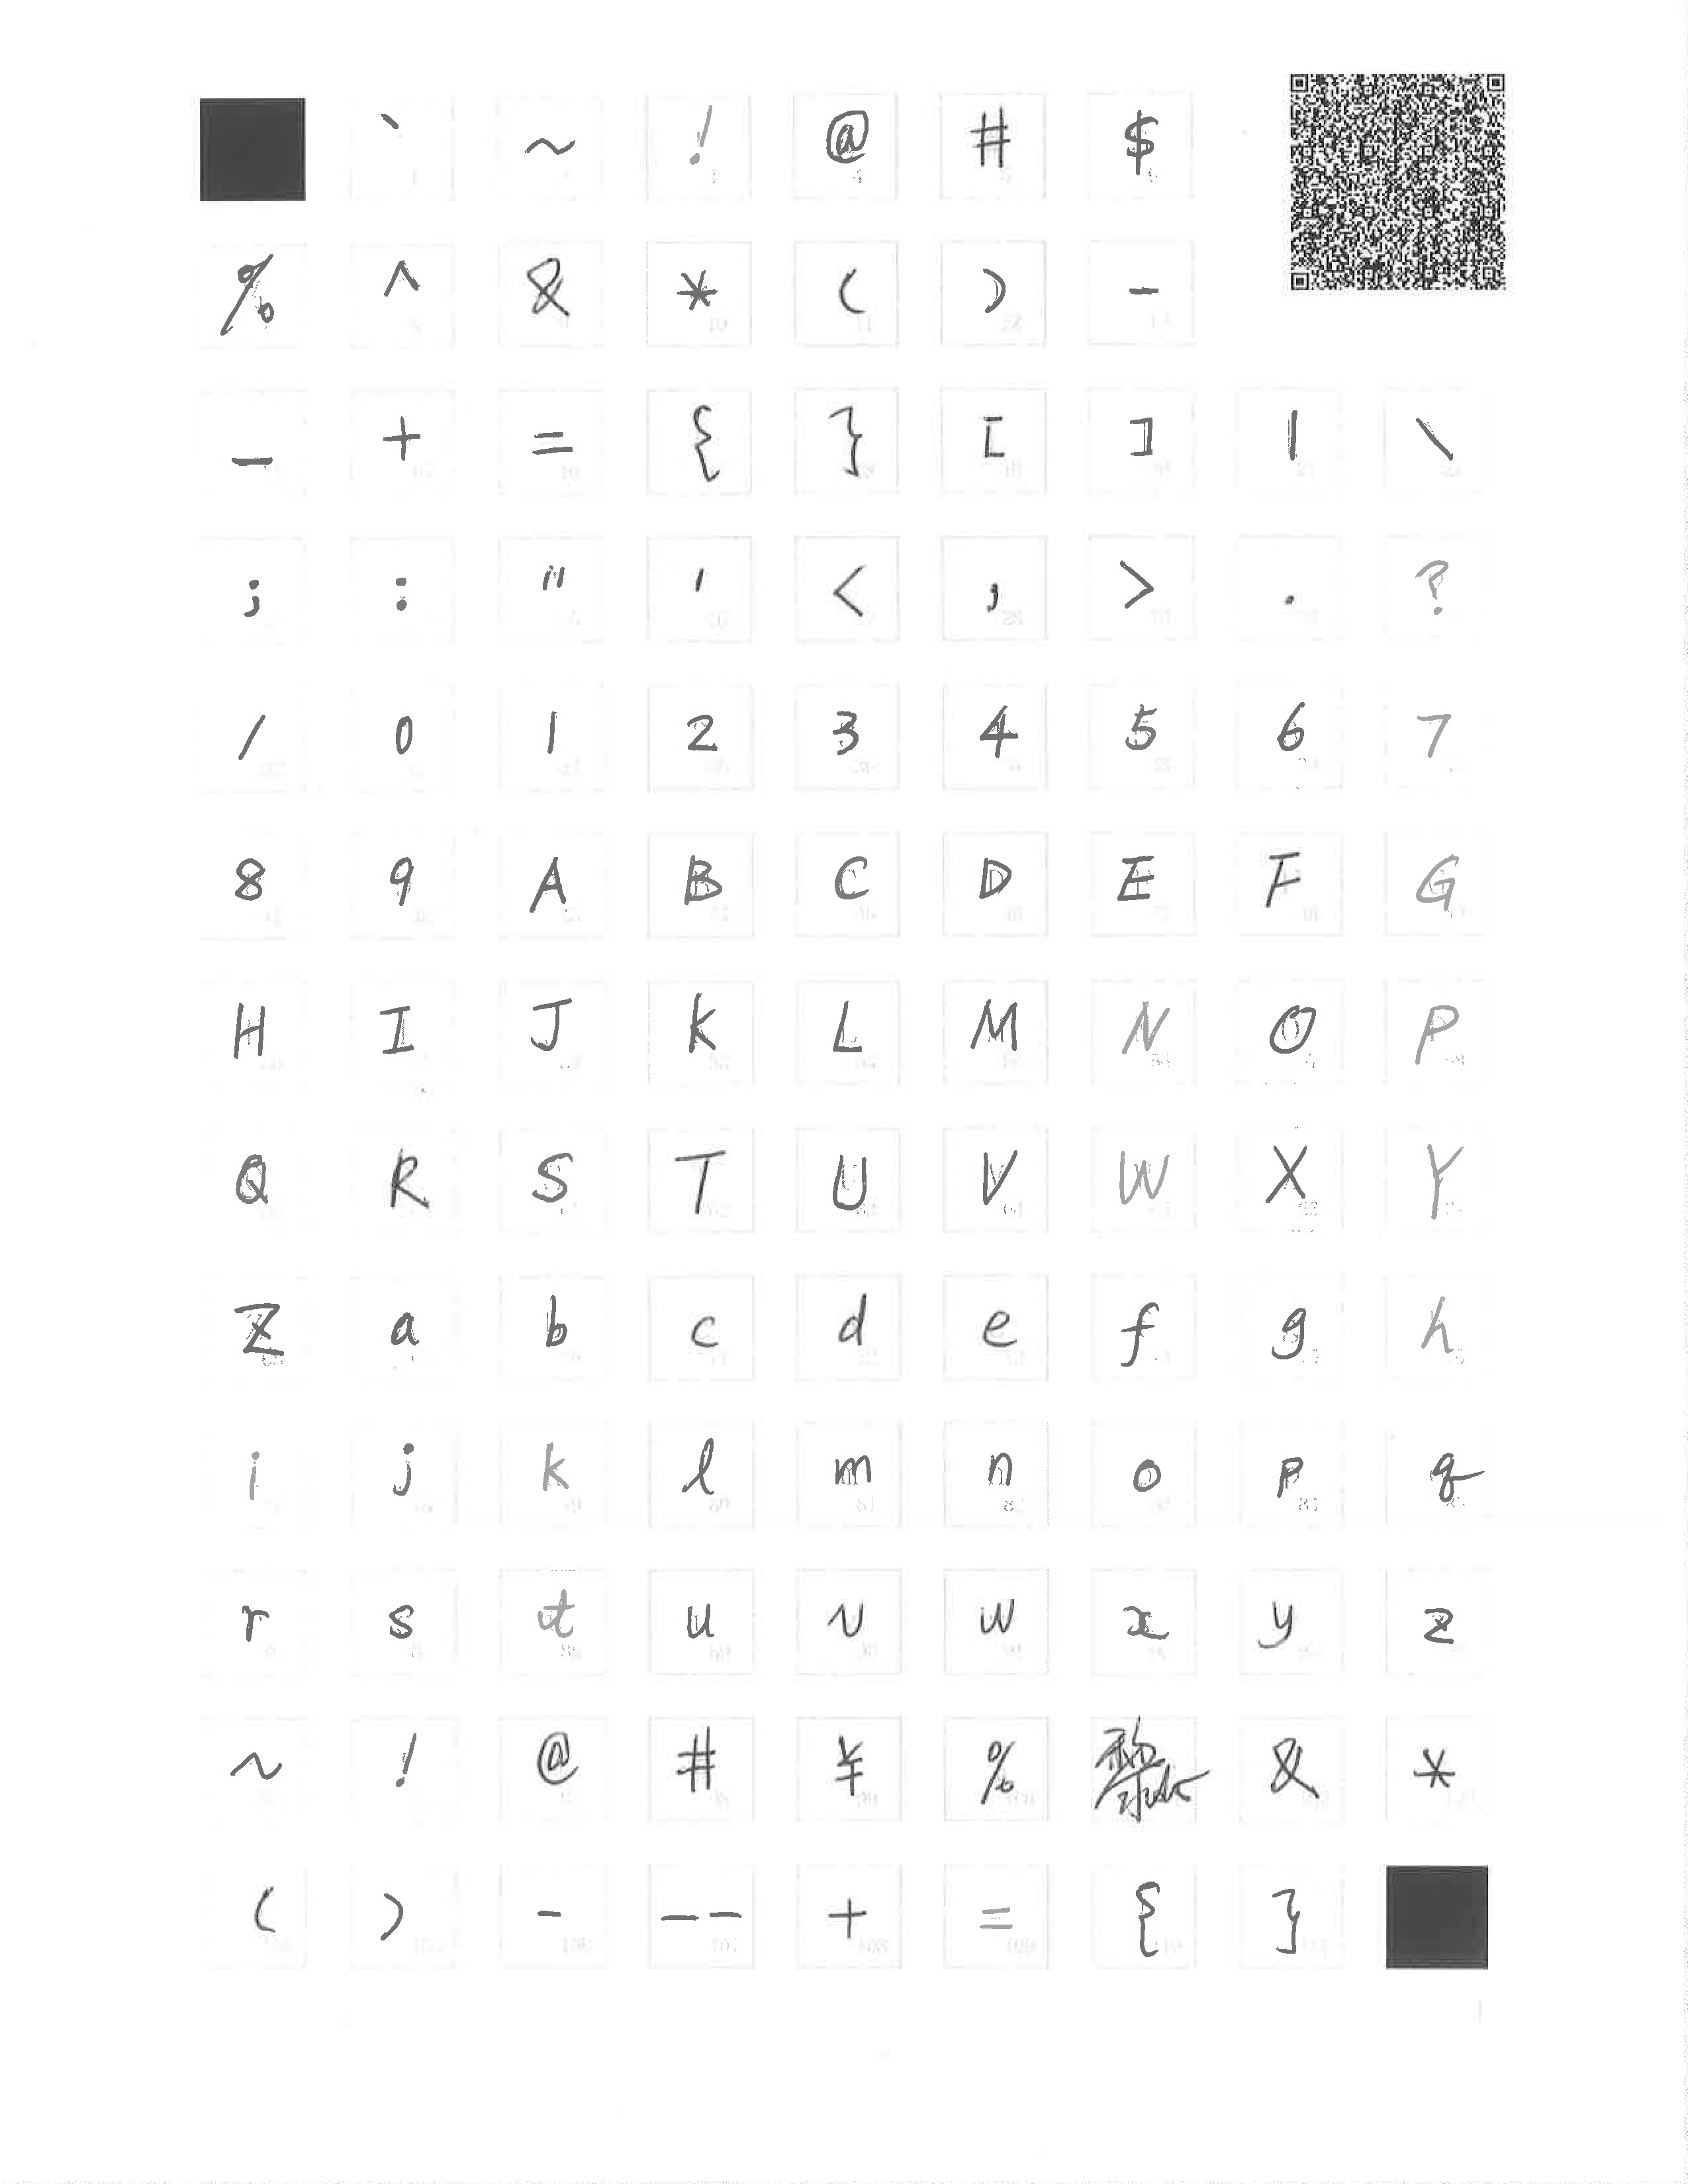 ` ~ ! @ # $
% ^ & * ( ) -
_ + = { } [ ] | \
; : " ' < , > . ?
/ 0 1 2 3 4 5 6 7
8 9 A B C D E F G
H I J K L M N O P
Q R S T U V W X Y
Z a b c d e f g h
i j k l m n o p q
r s t u v w x y z
~ ! @ # ¥ % & *
( ) - —— + = { }